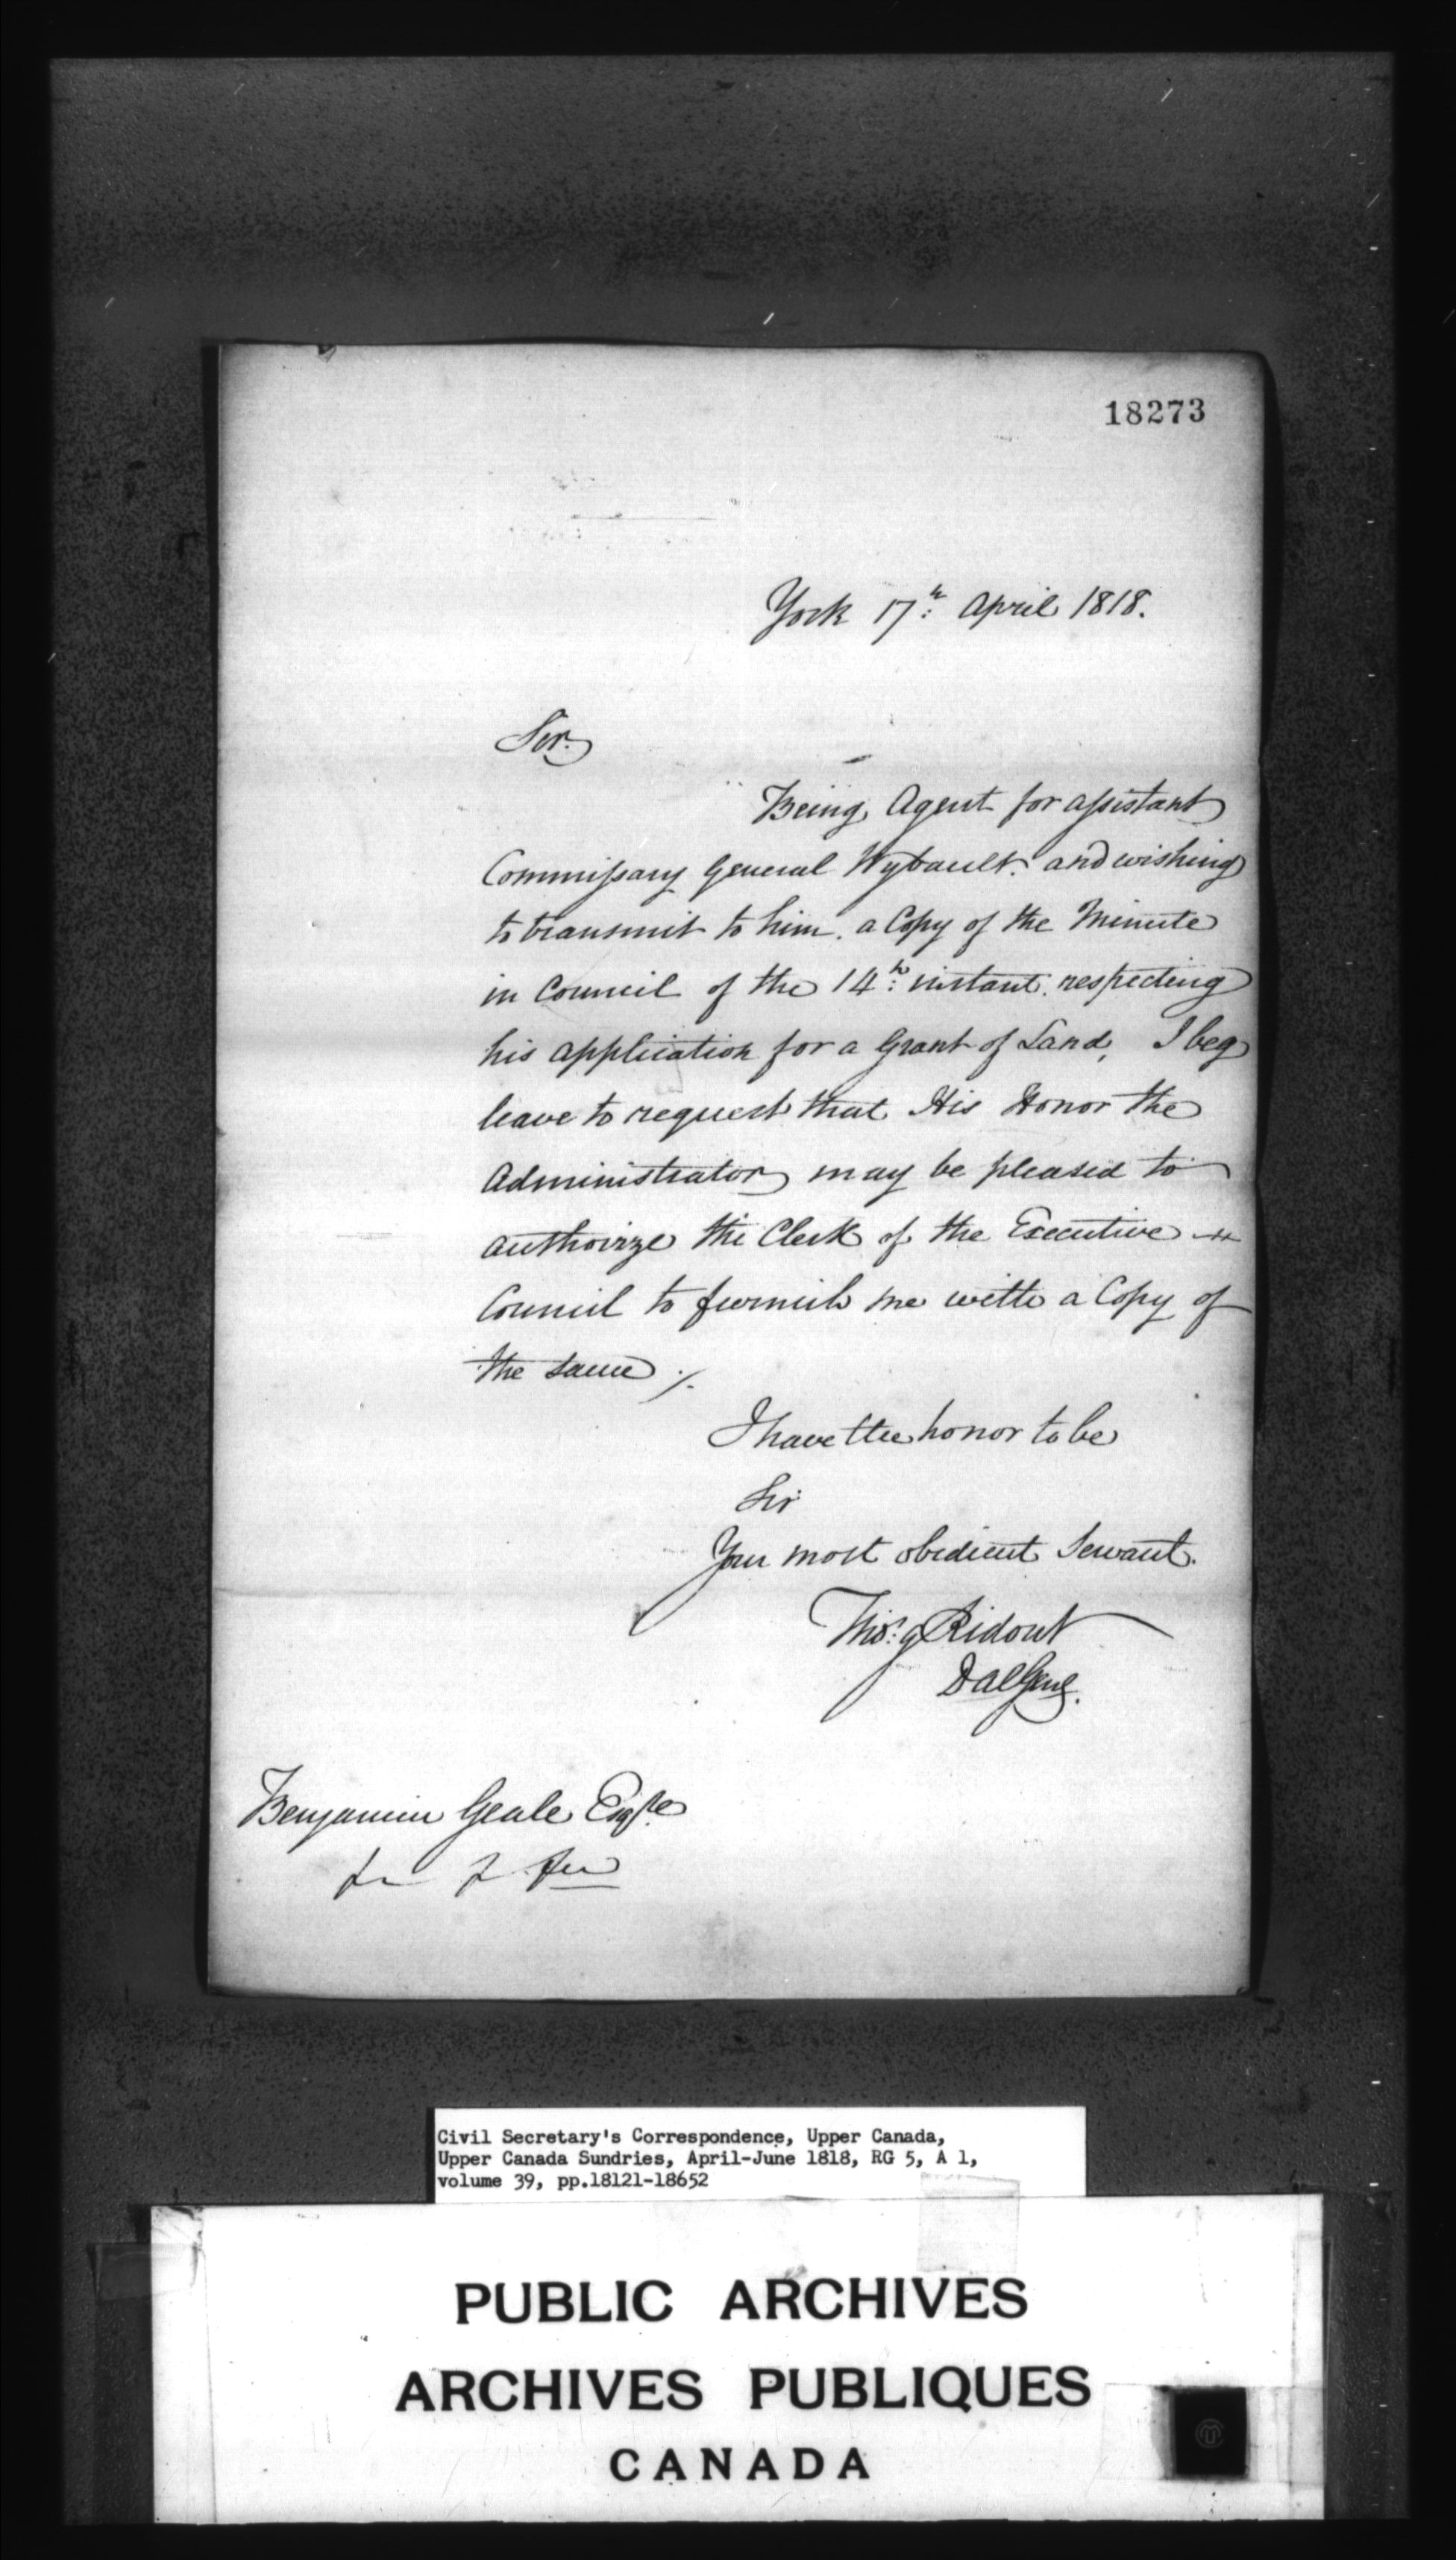 18273
York 17th: April 1818.
Sir.
Being Agent for assistant
Commissary General Wybault. and wishing
to transmit to him. a Copy of the Minute
in Council of the 14th: instant. respecting
his application for a Grant of Land, I beg
leave to request that His Honor the
Administrator may be pleased to
authorize the Clerk of the Executive
Council to furnish me with a Copy of
the same ./.
I have the honor to be
Sir
Your most obedient Servant.
Thos: G Ridout
DACGenl.
Benjamin Geale Esqre
Civil Secretary's Correspondence, Upper Canada,
Upper Canada Sundries, April-June 1818, RG 5, A 1,
volume 39, pp.18121-18652
PUBLIC ARCHIVES
ARCHIVES PUBLIQUES
CANADA